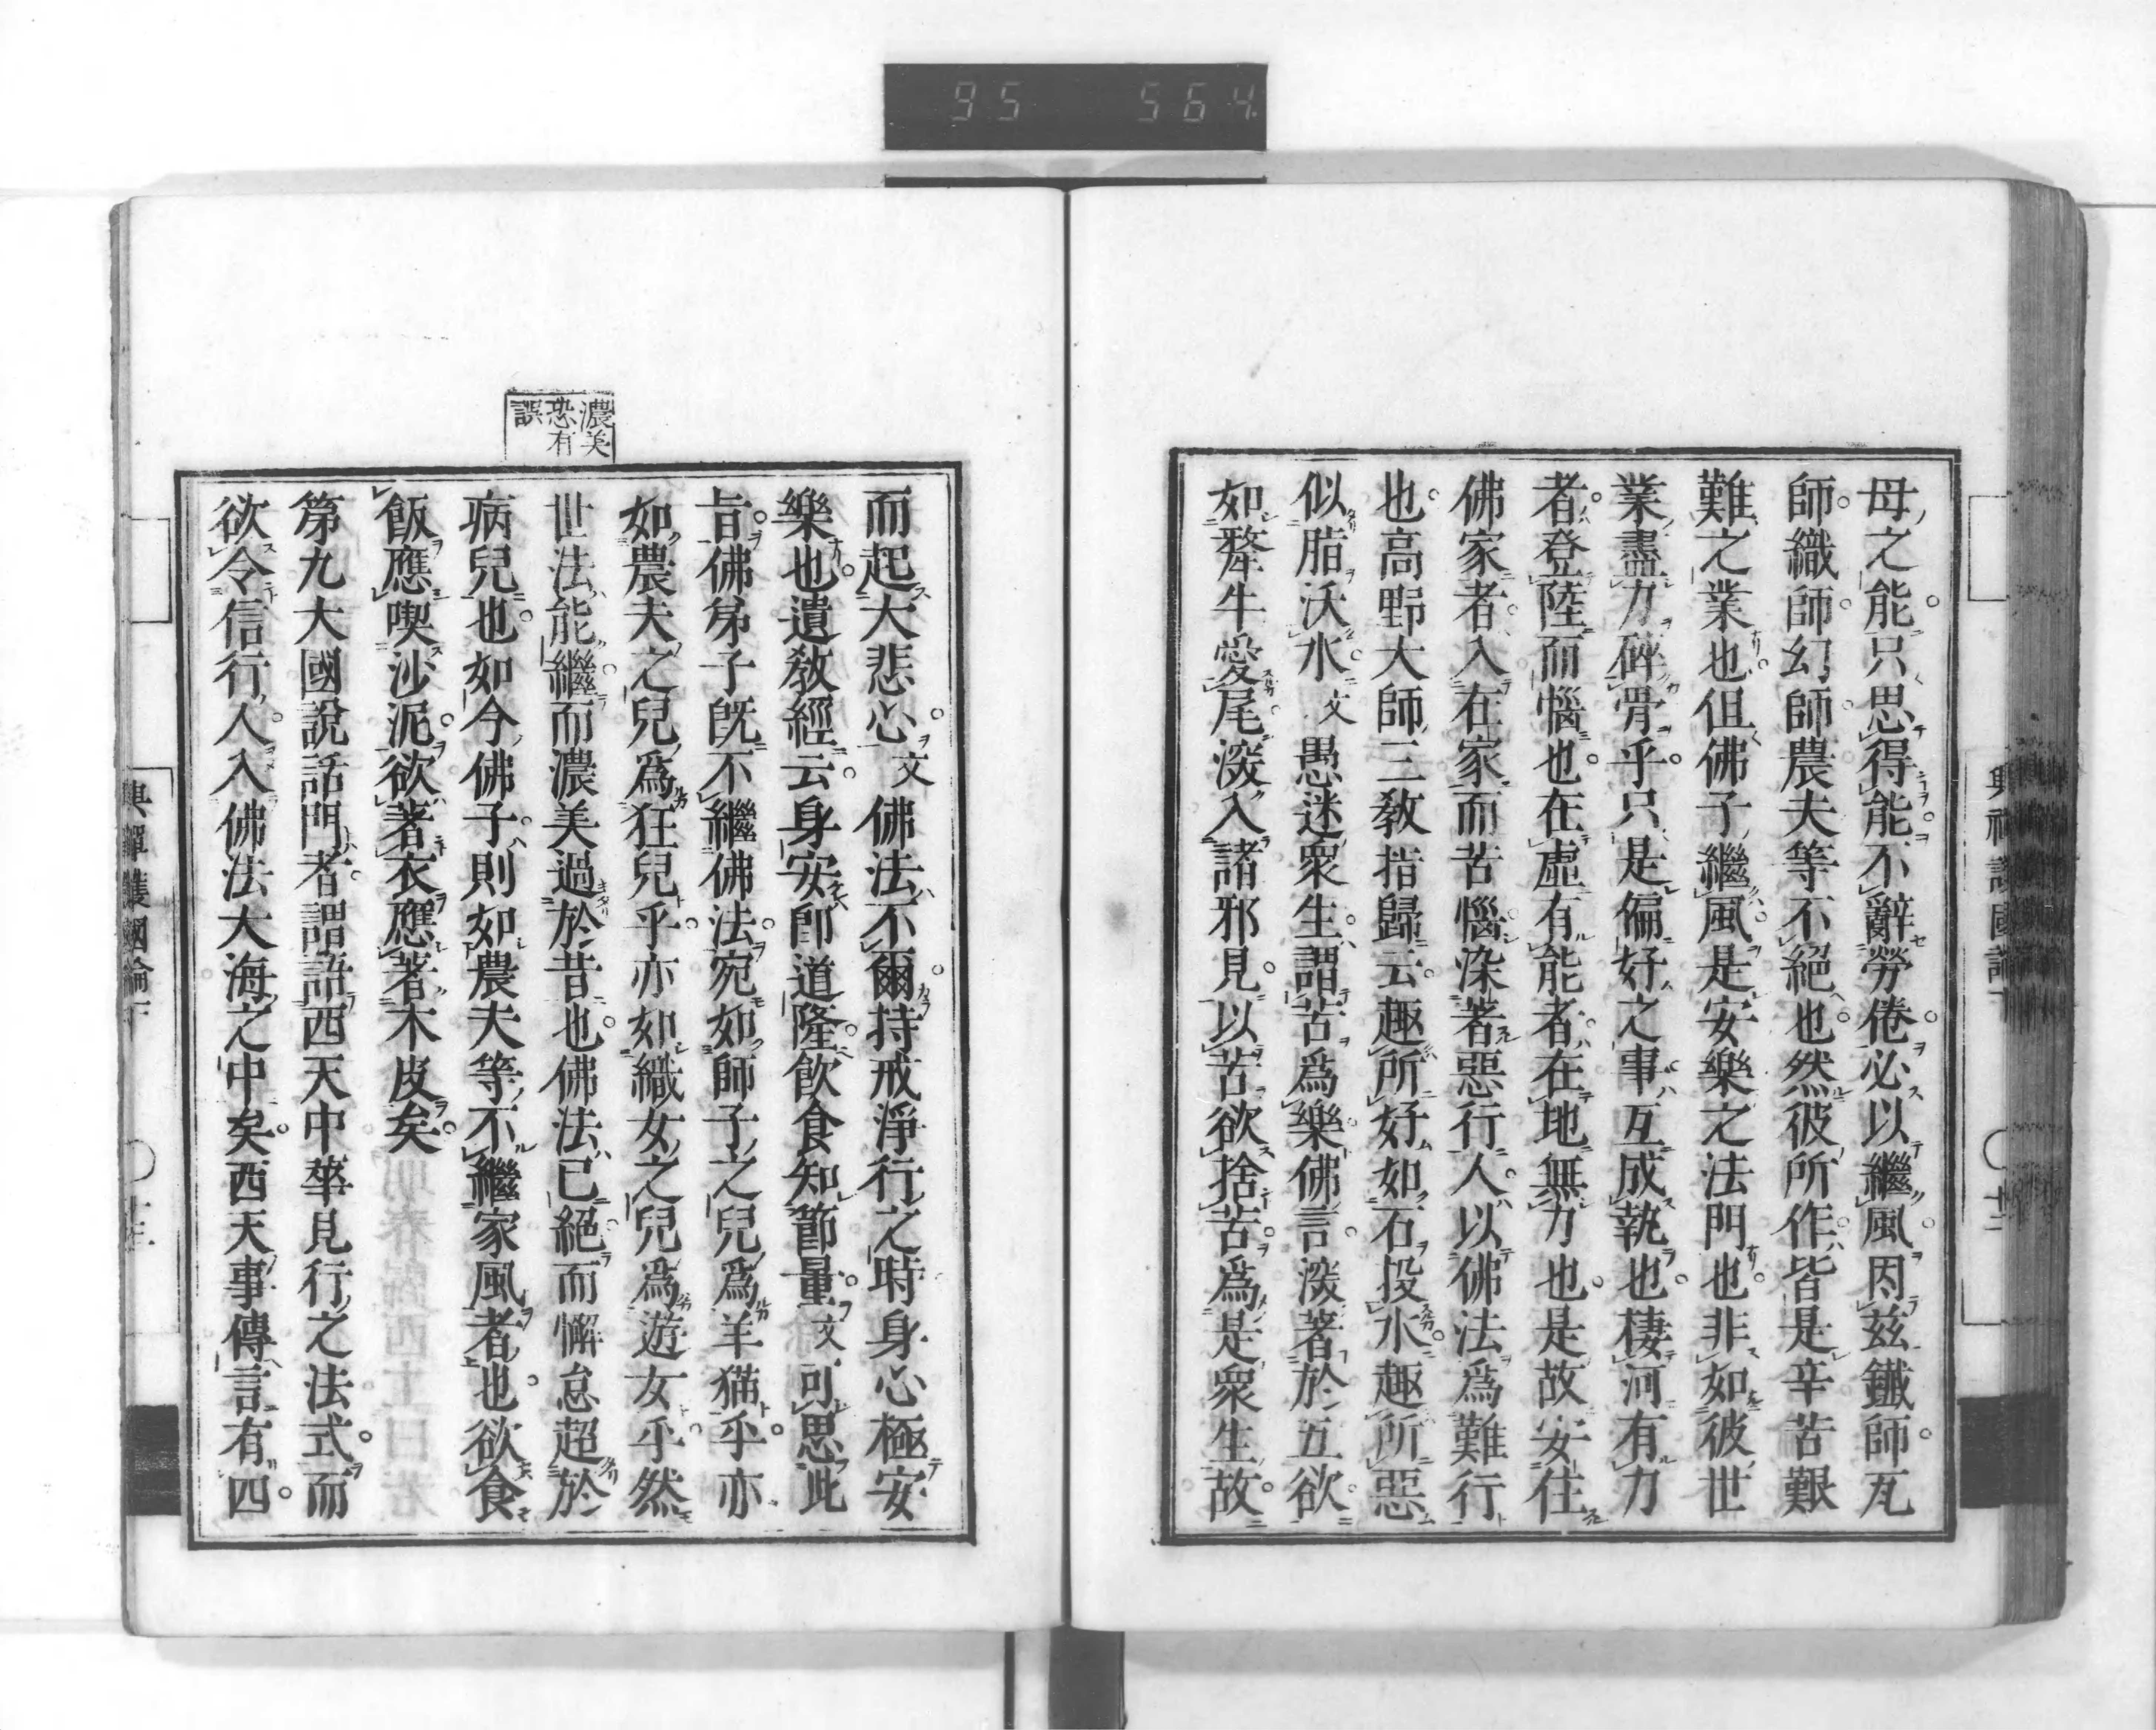 95 564
母之能只思得能不辭勞倦必以繼風因玆鐵師瓦
師織師幻師農夫等不絕也然彼所作皆是辛苦艱
難之業也但佛子繼風是安樂之法門也非如彼世
業盡力碎骨乎只是偏好之事互成執也棲河有力
者登陸而惱也在虛有能者在地無力也是故安住
佛家者入在家而苦惱染著惡行人以佛法爲難行
也高野大師三敎指歸云趣所好如石投水趣所惡
似脂沃水文愚迷衆生謂苦爲樂佛言深著於五欲
如犛牛愛尾深入諸邪見以苦欲捨苦爲是衆生故
興禪護國論下
十二
濃美
恐有
誤
而起大悲心文佛法不爾持戒淨行之時身心極安
樂也遺敎經云身安卽道隆飮食知節量文可思此
旨佛弟子旣不繼佛法宛如師子之兒爲羊猫乎亦
如農夫之兒爲狂兒乎亦如織女之兒爲遊女乎然
世法能繼而濃美過於昔也佛法已絕而懈怠超於
病兒也如今佛子則如農夫等不繼家風者也欲食
飯應喫沙泥欲著衣應著木皮矣
第九大國說話門者謂語西天中華見行之法式而
欲令信行人入佛法大海之中矣西天事傳言有四
興禪護國論下